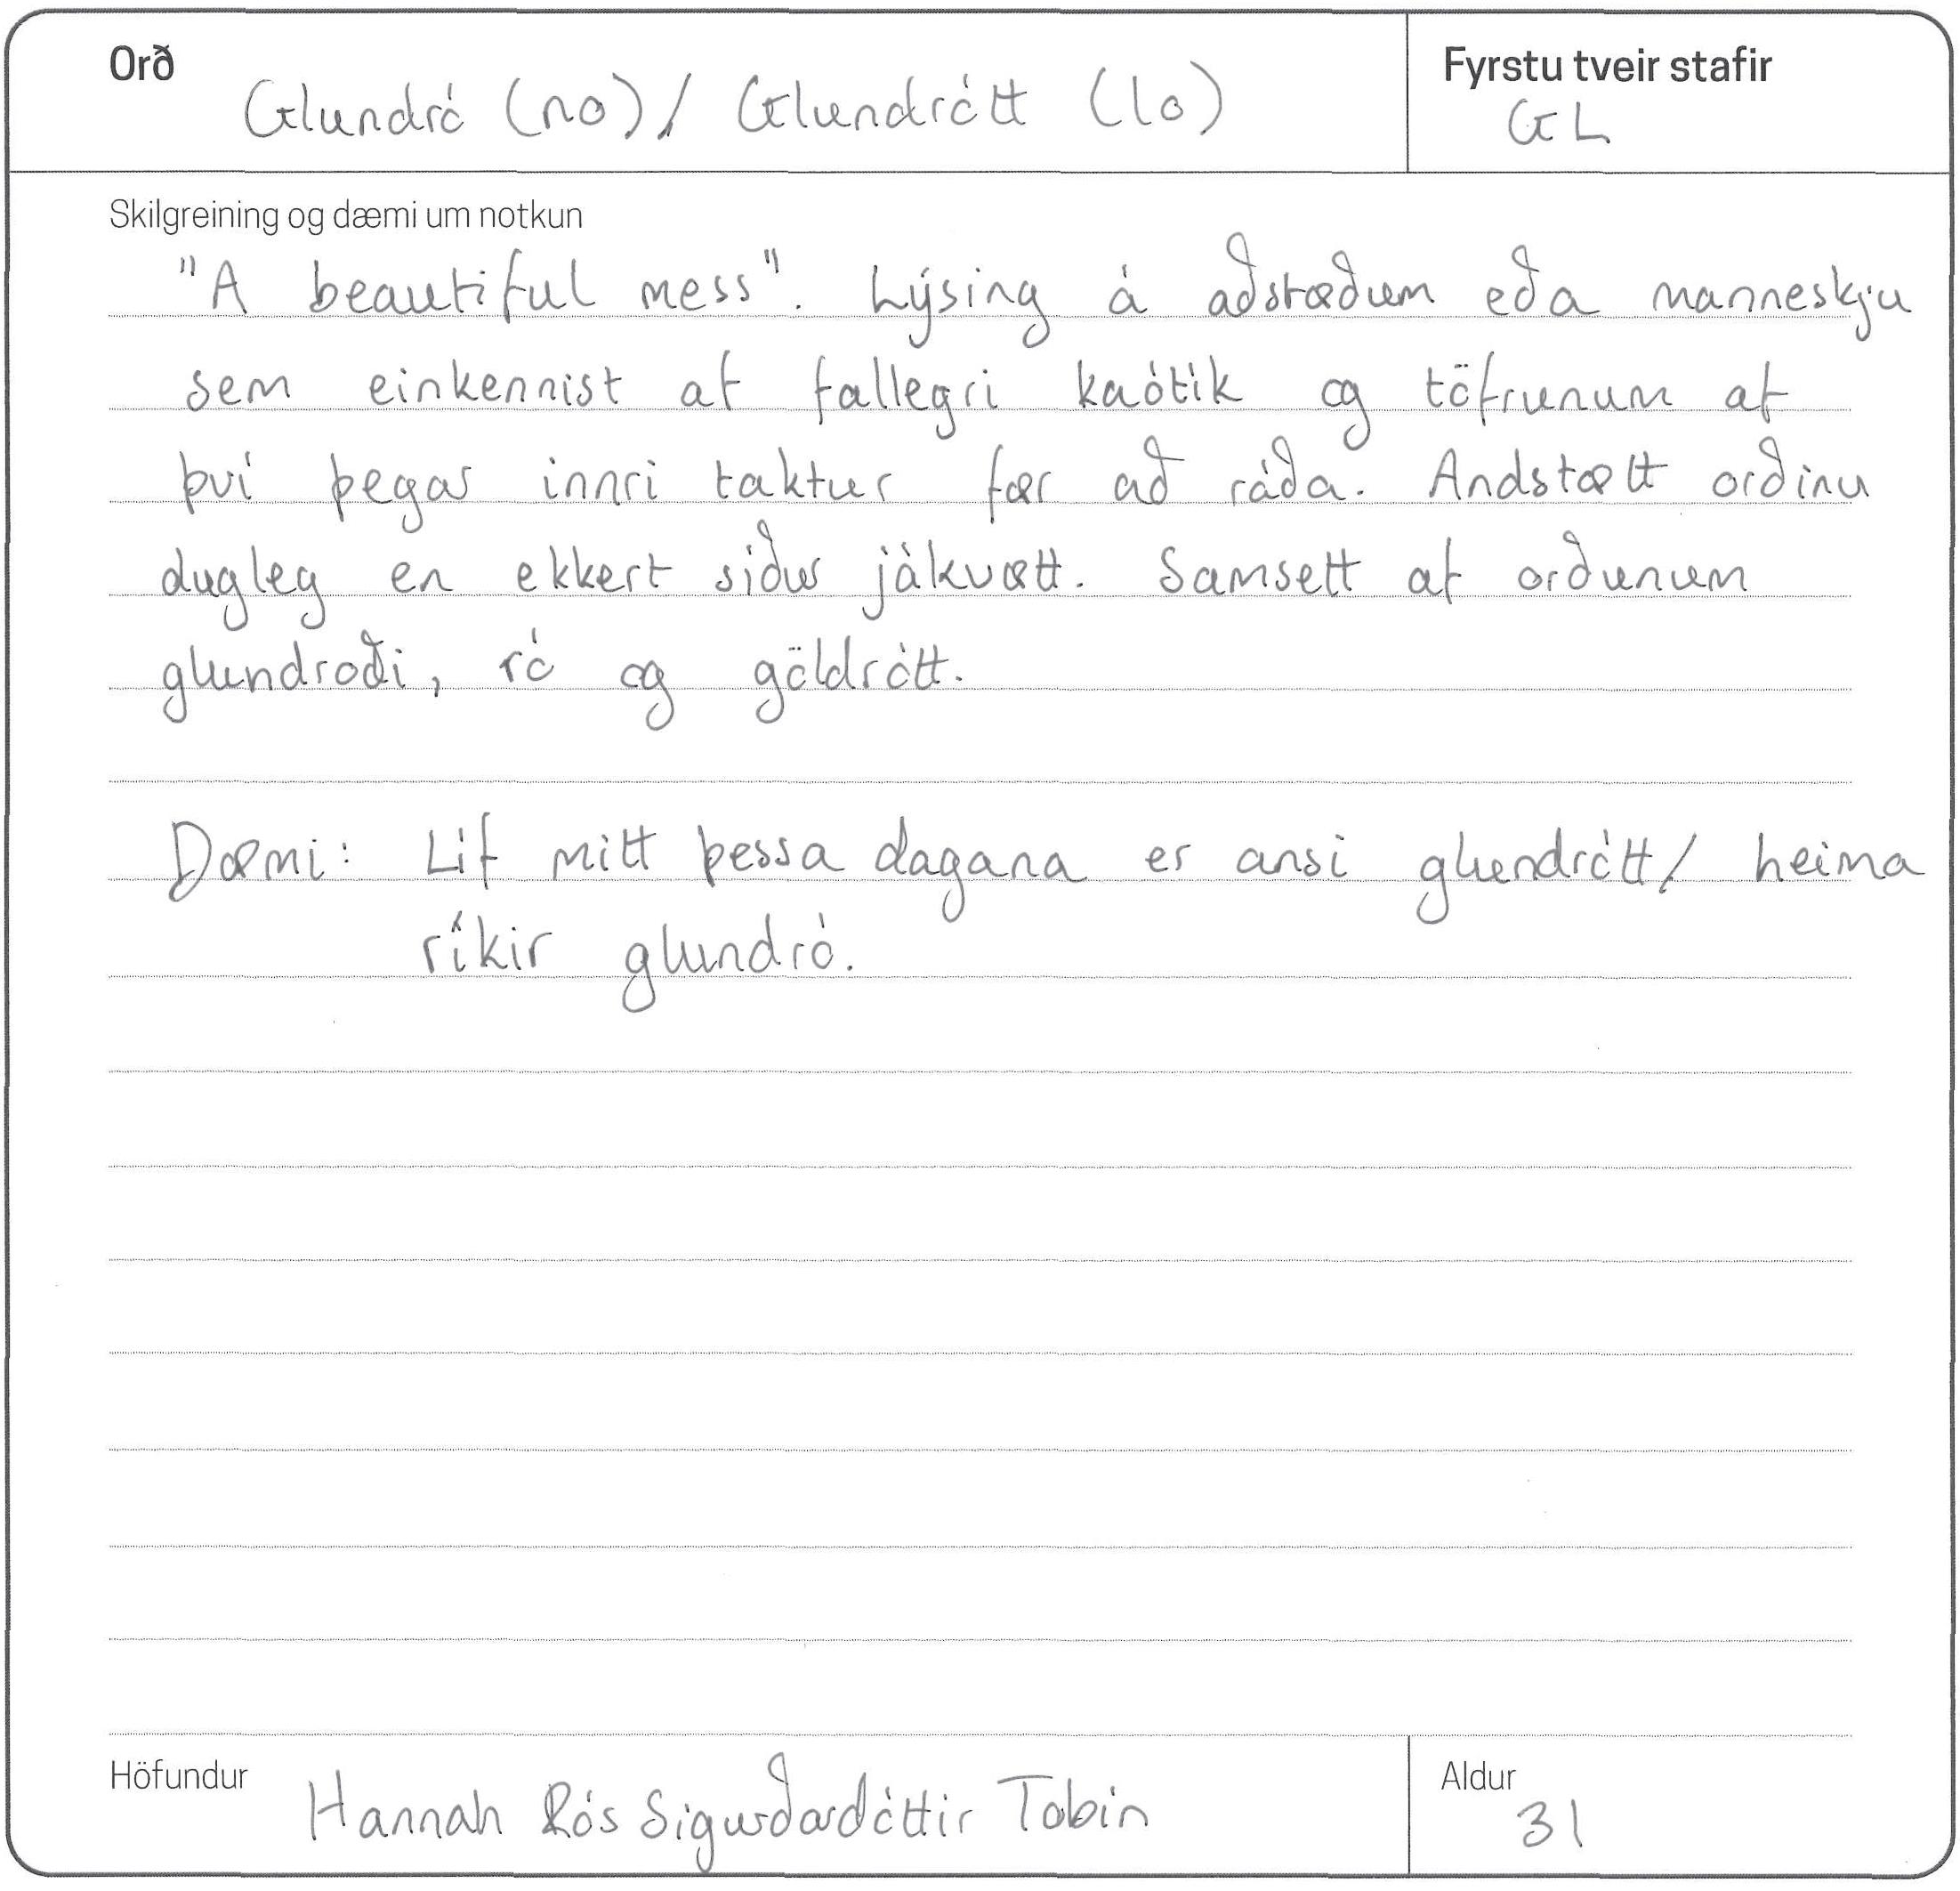 Orð
Glundró (no) / Glundrótt (lo)
Fyrstu tveir stafir
GL
Skilgreining og dæmi um notkun
"A beautiful mess". Lýsing á aðstæðum eða manneskju
sem einkennist af fallegri kaótík og töfrunum af
því þegar innri taktur fær að ráða. Andstætt orðinu
dugleg en ekkert síður jákvætt. Samsett af orðunum
glundroði, ró og göldrótt.
Dæmi: Líf mitt þessa dagana er ansi glundrótt / heima
ríkir glundró.
Höfundur
Hannah Rós Sigurðardóttir Tobin
Aldur
31